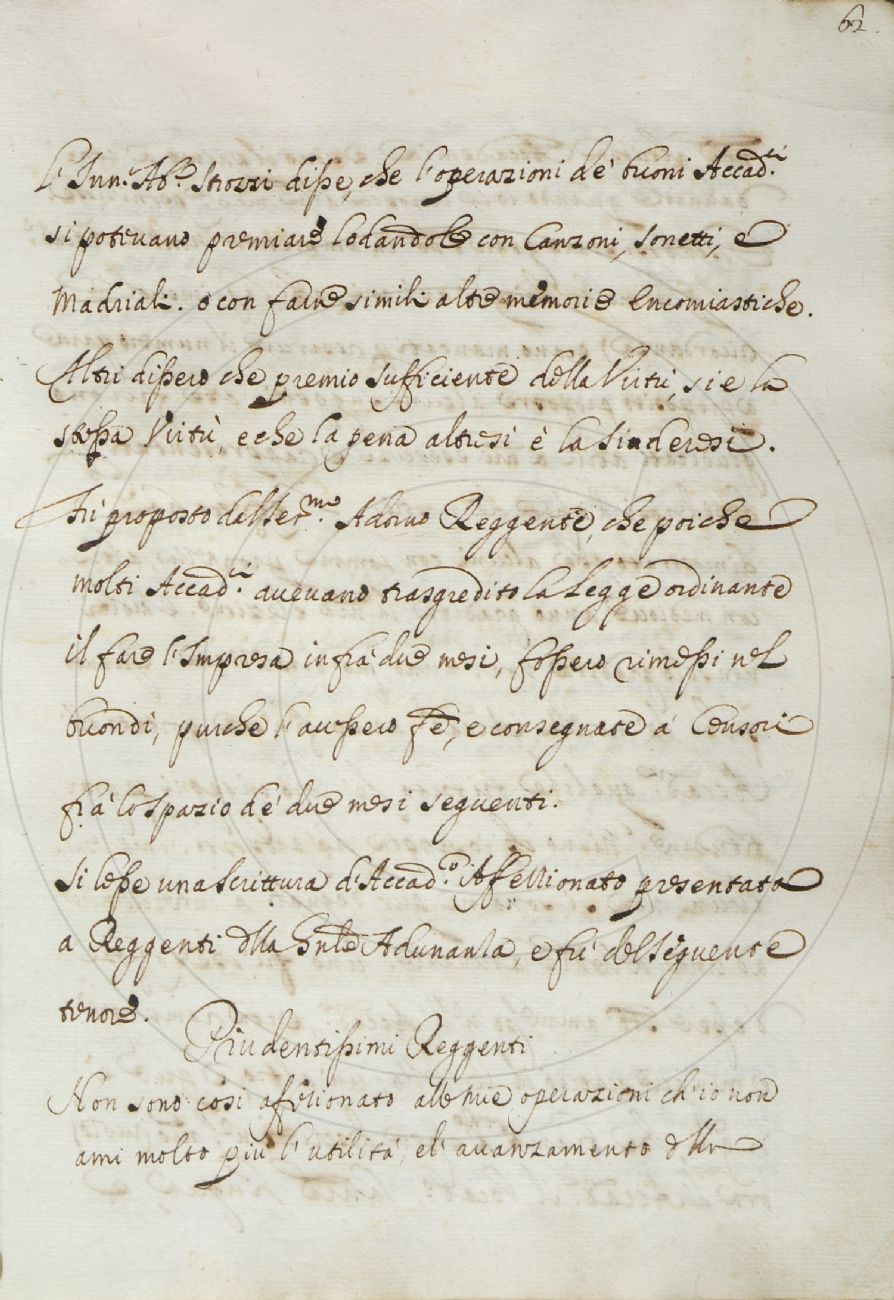 62.
L'Inn. Ab.e Strozzi disse, che l'operazioni de' buoni Accad.ci
si potevano premiare lodandole con Canzoni, sonetti, e
Madriali. o con farne simili altre memorie Encomiastiche.
Altri dissero che premio sufficiente della Virtù, si e la
stessa Virtù, e che la pena altresi è la Sinderesi.
Fù proposto dall'Ser.mo Adorno Reggente, che poiche
molti Accad.ci avevano trasgredito la Legge ordinante
il fare l'Impresa infra' due mesi, fossero rimessi nel
buondì, purche l'avessero fte, e consegnate a' Censori
fra' lo spazio de' due mesi seguenti.
Si lesse una Scrittura d'Accad.co Affezzionato presentata
a Reggenti dlla Gnle Adunanza, e fu' del seguente
tenore.
Prudentissimi Reggenti
Non sono così afezionato alle mie operazioni ch'io non
ami molto più l'utilità, e l'avanzamento dlla